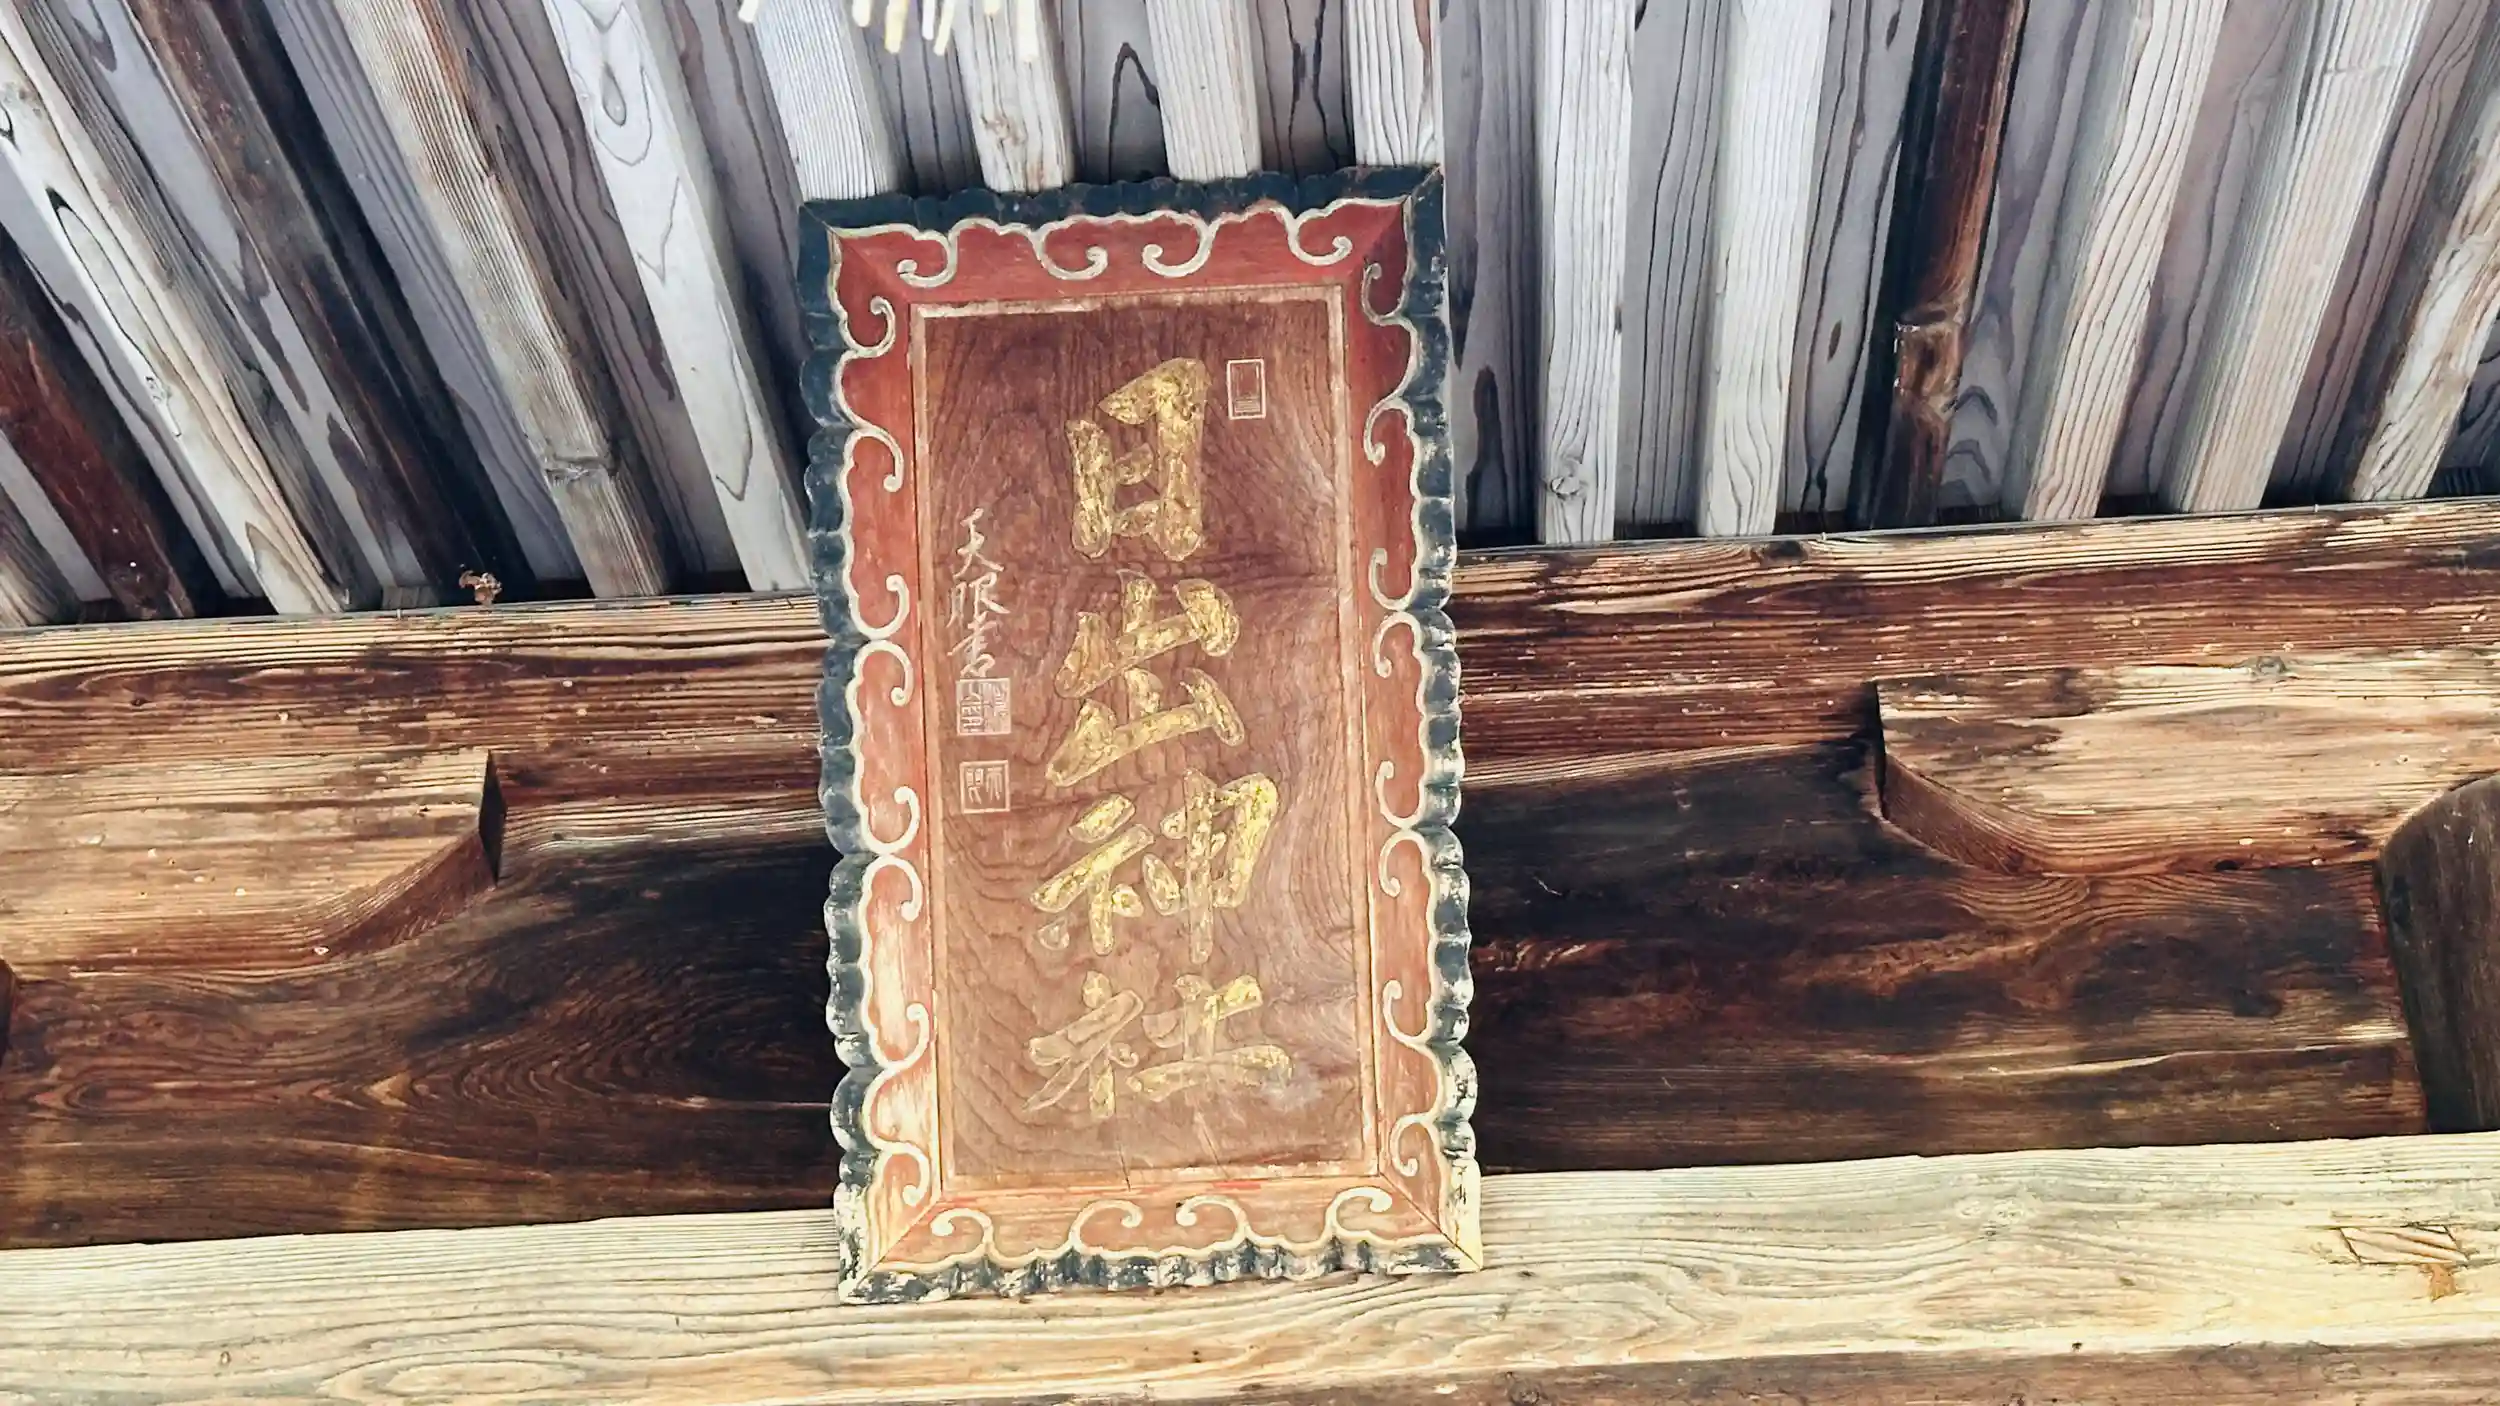 日出神社
天眼書